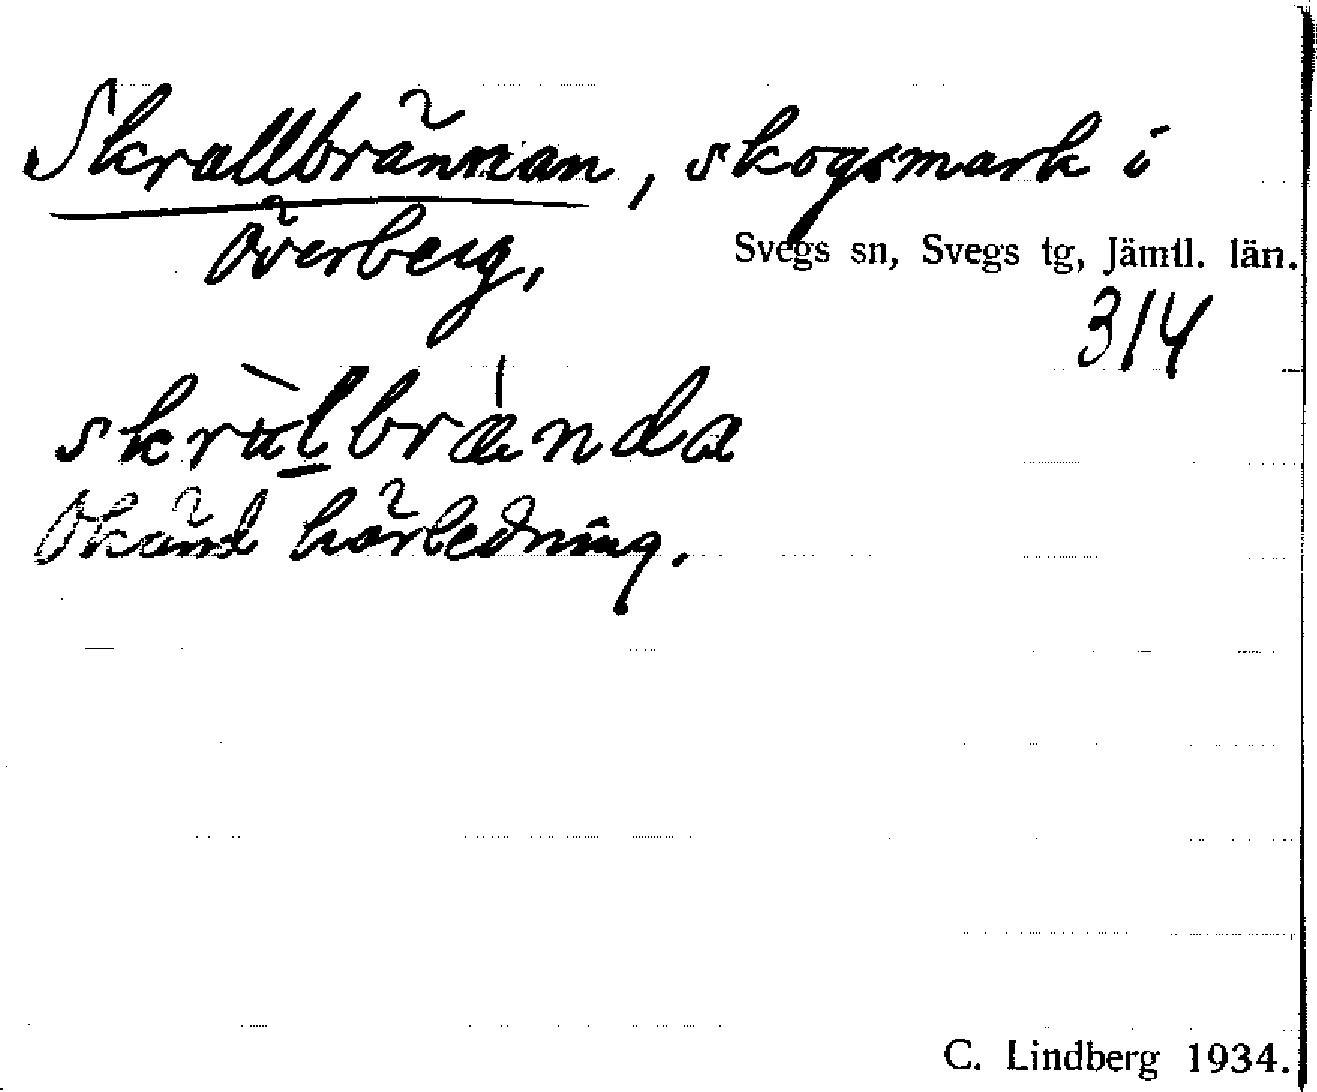 Skrallbrännan, skogsmark i
Överberg, Svegs sn, Svegs tg, Jämtl. län.
314
skràlbrända
Okänd härledning.
C. Lindberg 1934.